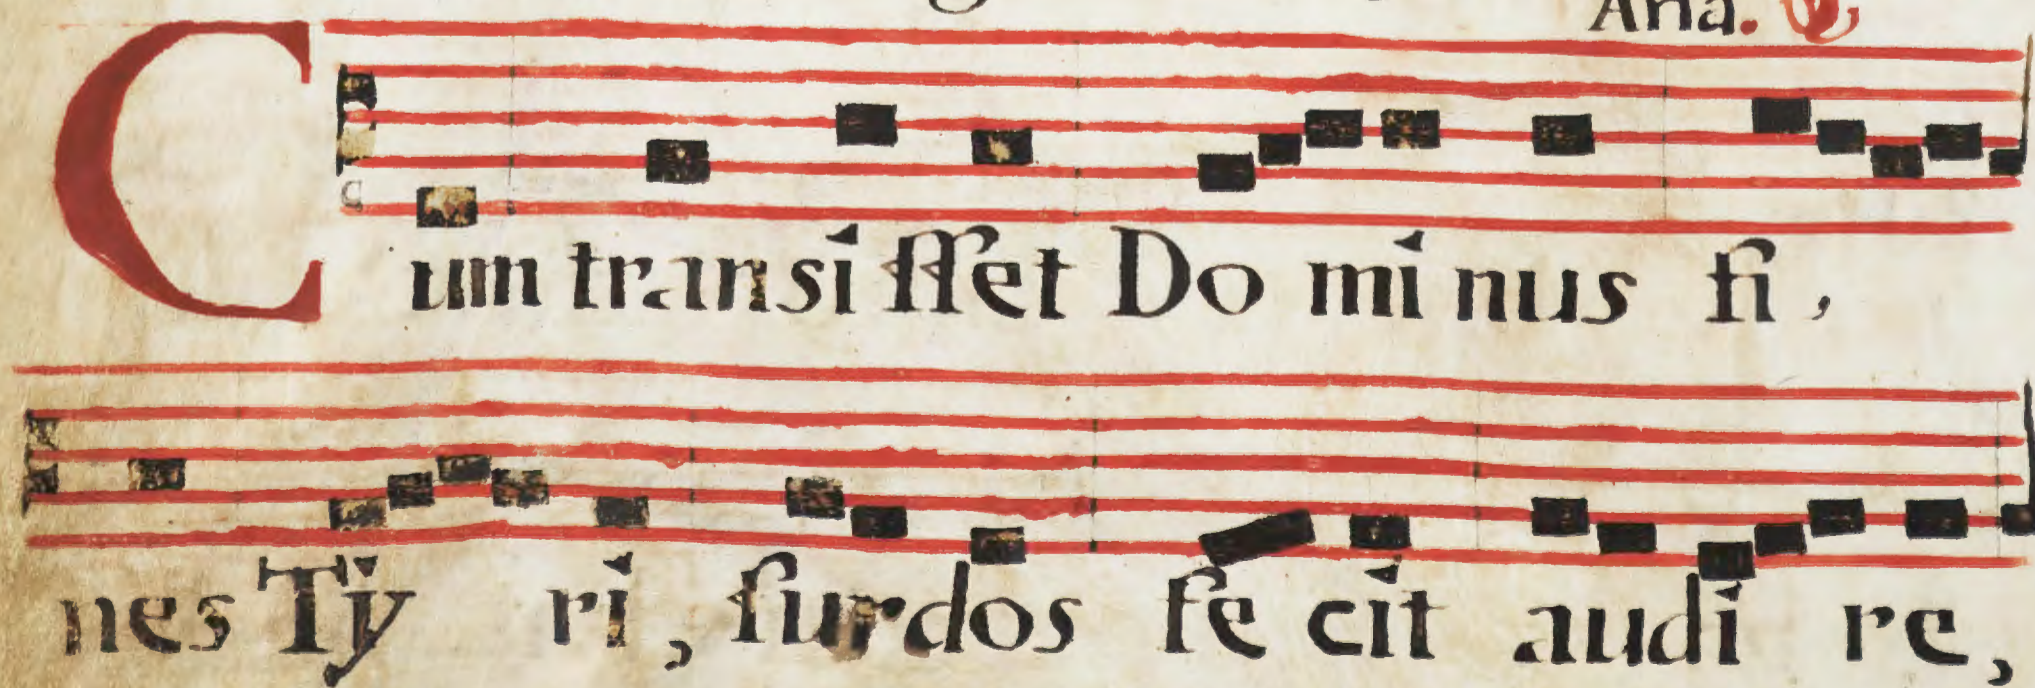 Aña.
Cum transisset Do mi nus fi,
nes Tÿ ri, surdos fe cit audi re,